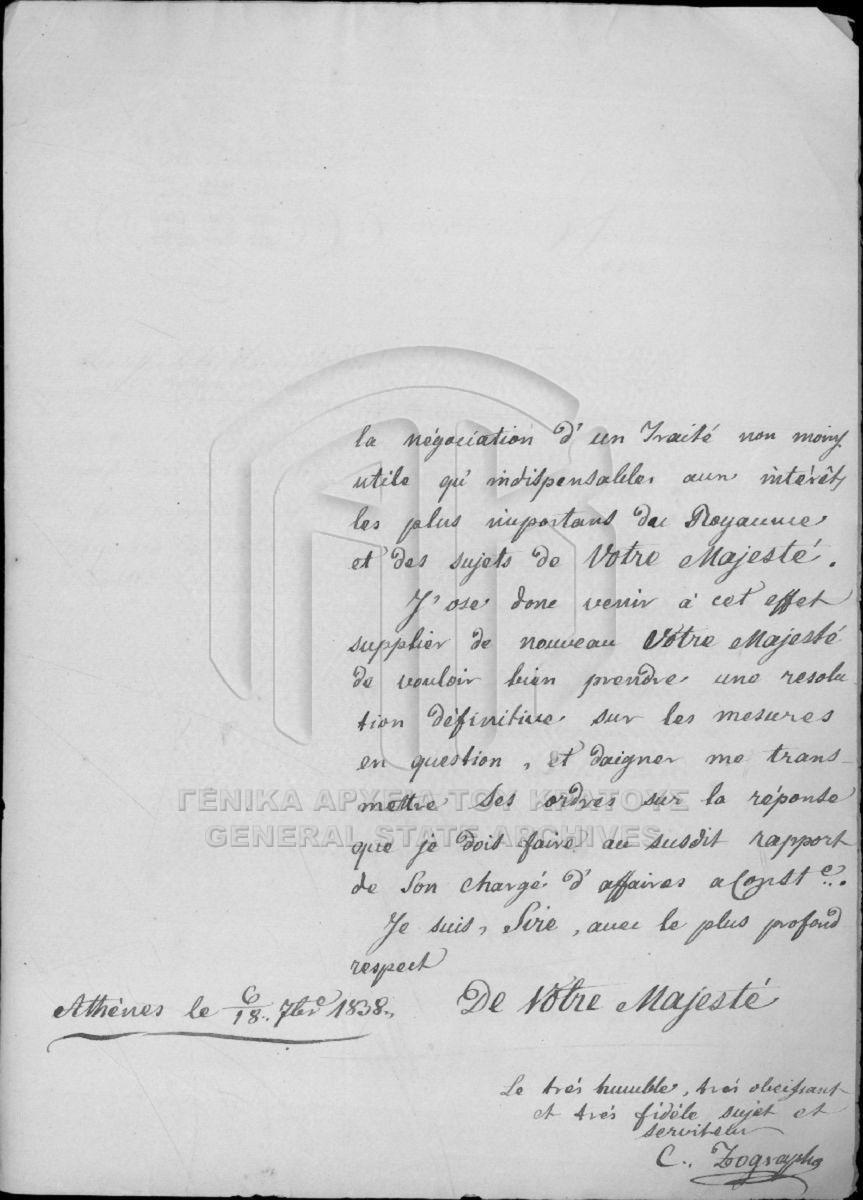 la négociation d'un Traité non moins
utile qu'indispensables aux intérêts
les plus importans du Royaume
et des sujets de Votre Majesté.
J'ose donc venir à cet effet
supplier de nouveau Votre Majesté
de vouloir bien prendre une resolu-
tion définitive sur les mesures
en question, et daigner me trans-
mettre Ses ordres sur la réponse
ΓΕΝΙΚΑ ΑΡΧΕΙΑ ΤΟΥ ΚΡΑΤΟΥΣ
GENERAL STATE ARCHIVES
que je dois faire au susdit rapport
de Son chargé d'affaires a Const.e.
Je suis, Sire, avec le plus profond
respect
Athènes le 6/18. 7bre 1838.
De Votre Majesté
Le trés humble, trés obeissant
et trés fidéle sujet et
serviteur
C. Zographo